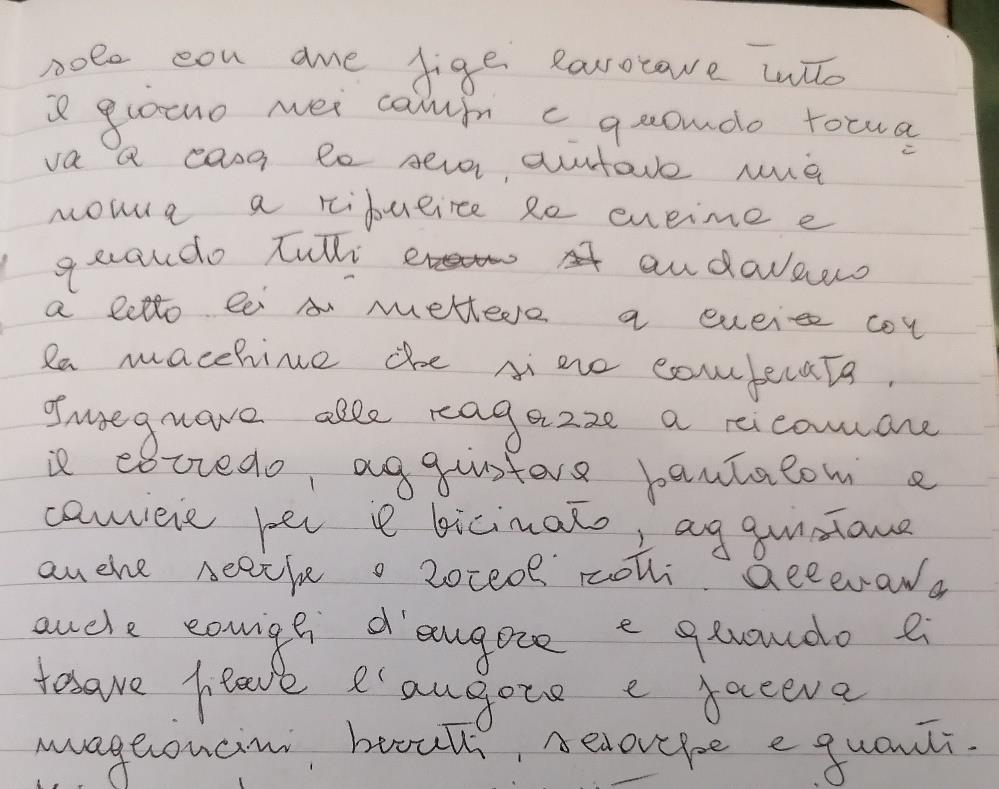 sola con due figli lavorava tutto
il giorno nei campi e quando torna
va a casa la sera, aiutava mia
nonna a ripulire la cucina e
quando tutti andavano
a letto lei si metteva a cucire con
la macchina che si era comperata.
Insegnava alle ragazze a ricamare
il corredo, aggiustava pantaloni e
camicie per il vicinato, aggiustava
anche scarpe o zoccoli rotti. Allevava
anche conigli d'angora e quando li
tosava filava l'angora e faceva
maglioncini, berretti, sciarpe e quanti-